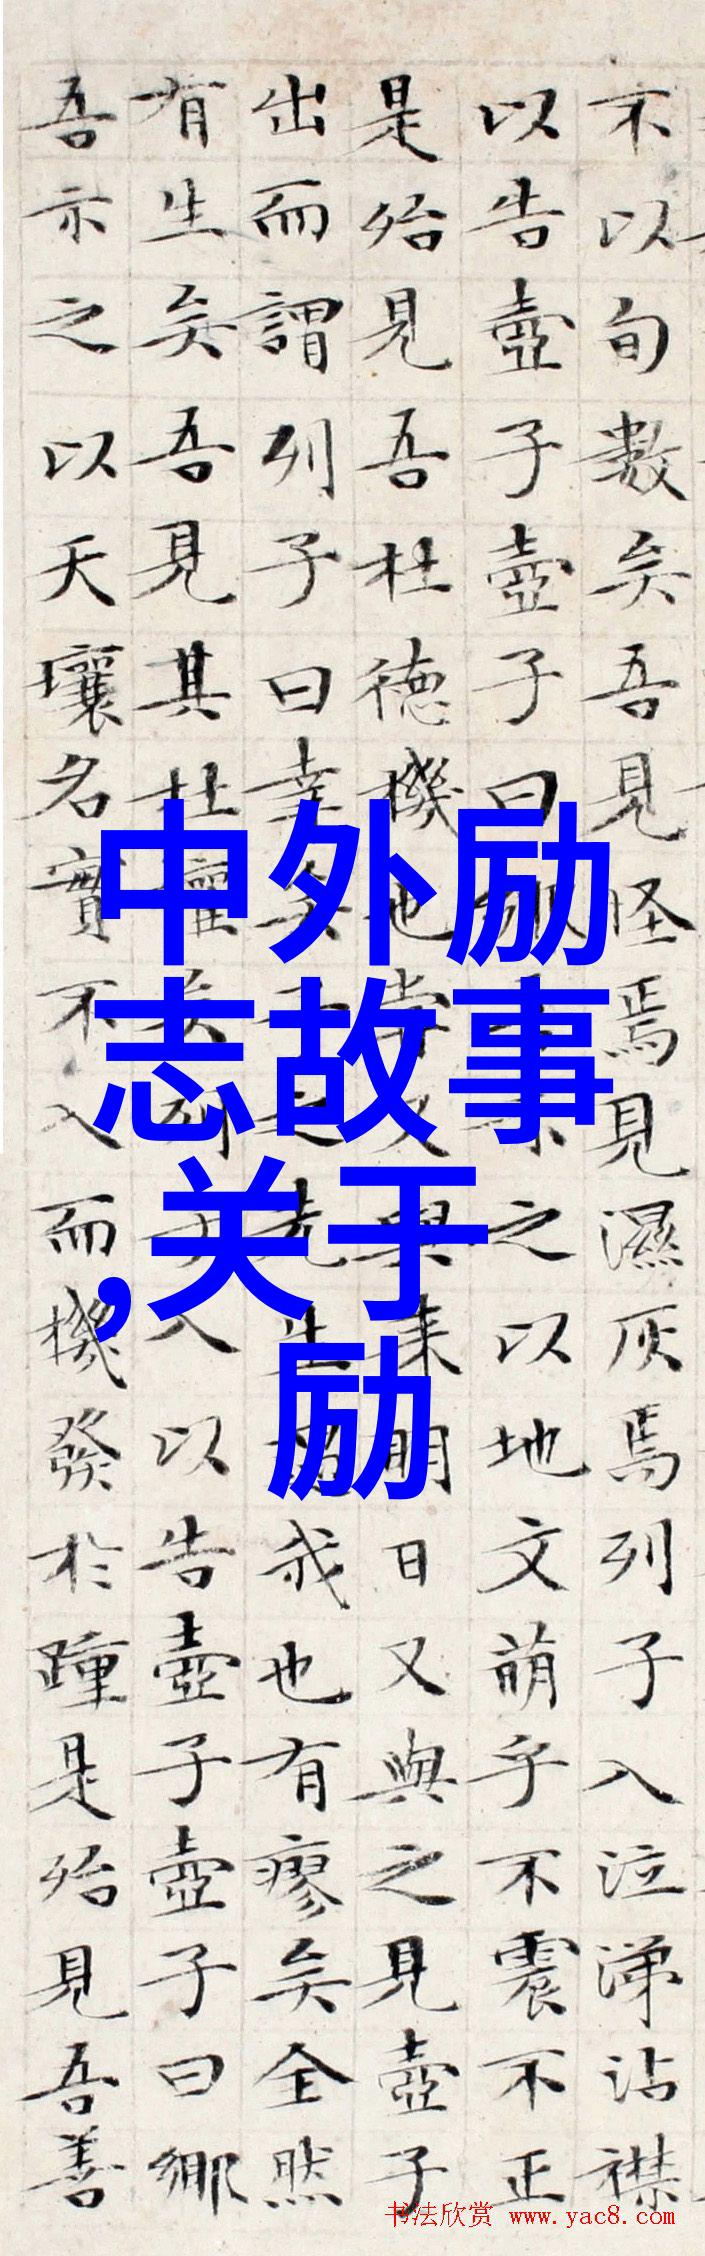 不以旬數矣吾見怪焉見濕灰焉列子入泣涕沾襟
以告壺子壺子曰鄉吾示之以地文萌乎不震不正
是殆見吾杜德機也嘗又與來明日又與之見壺子
出而謂列子曰幸矣子之先生遇我也有瘳矣全然
有生矣吾見其杜權矣列子入以告壺子壺子曰鄉
吾示之以天壤名實不入而機發於踵是殆見吾善
中外励
志故事
,关于
励
书法欣赏 www.yac8.com